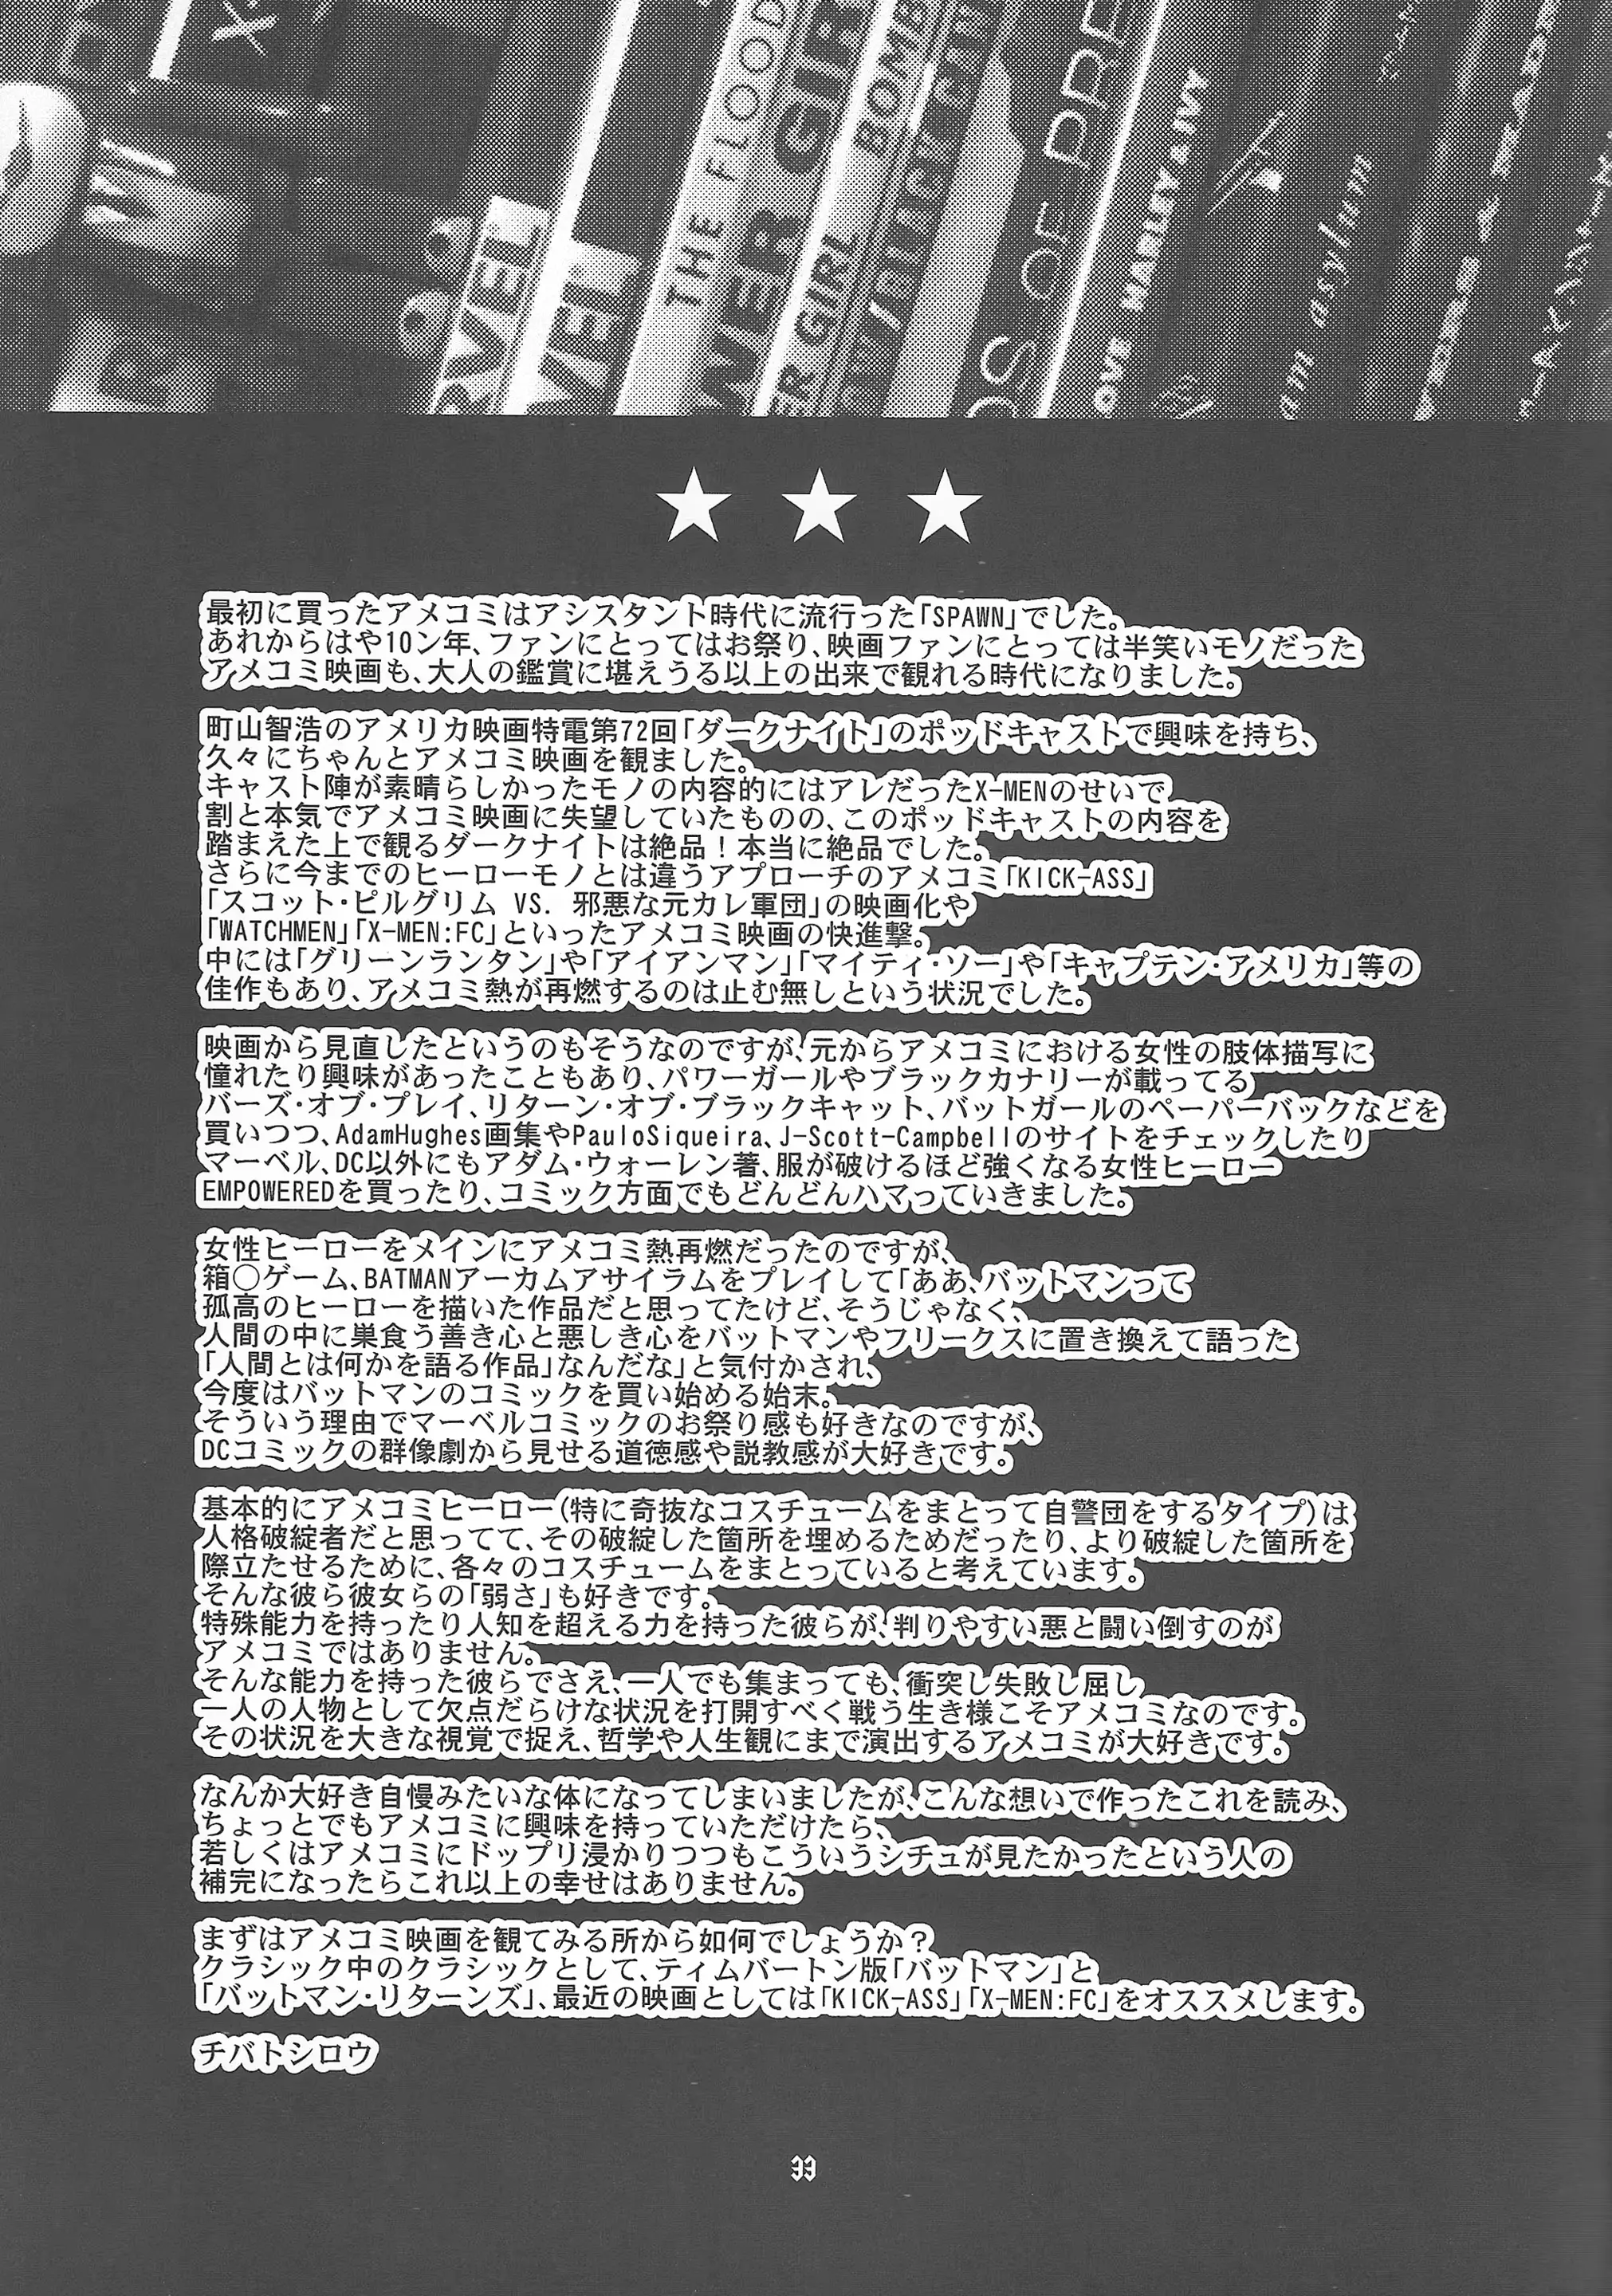 THE FLOOD
HARLEY & IVY
am asylum
★ ★ ★
最初に買ったアメコミはアシスタント時代に流行った「SPAWN」でした。
あれからはや10ン年、ファンにとってはお祭り、映画ファンにとっては半笑いモノだった
アメコミ映画も、大人の鑑賞に堪えうる以上の出来で観れる時代になりました。
町山智浩のアメリカ映画特電第72回「ダークナイト」のポッドキャストで興味を持ち、
久々にちゃんとアメコミ映画を観ました。
キャスト陣が素晴らしかったモノの内容的にはアレだったX-MENのせいで
割と本気でアメコミ映画に失望していたものの、このポッドキャストの内容を
踏まえた上で観るダークナイトは絶品！本当に絶品でした。
さらに今までのヒーローモノとは違うアプローチのアメコミ「KICK-ASS」
「スコット・ピルグリム VS. 邪悪な元カレ軍団」の映画化や
「WATCHMEN」「X-MEN:FC」といったアメコミ映画の快進撃。
中には「グリーンランタン」や「アイアンマン」「マイティ・ソー」や「キャプテン・アメリカ」等の
佳作もあり、アメコミ熱が再燃するのは止む無しという状況でした。
映画から見直したというのもそうなのですが、元からアメコミにおける女性の肢体描写に
憧れたり興味があったこともあり、パワーガールやブラックカナリーが載ってる
バーズ・オブ・プレイ、リターン・オブ・ブラックキャット、バットガールのペーパーバックなどを
買いつつ、AdamHughes画集やPauloSiqueira、J-Scott-Campbellのサイトをチェックしたり
マーベル、DC以外にもアダム・ウォーレン著、服が破けるほど強くなる女性ヒーロー
EMPOWEREDを買ったり、コミック方面でもどんどんハマっていきました。
女性ヒーローをメインにアメコミ熱再燃だったのですが、
箱○ゲーム、BATMANアーカムアサイラムをプレイして「ああ、バットマンって
孤高のヒーローを描いた作品だと思ってたけど、そうじゃなく、
人間の中に巣食う善き心と悪しき心をバットマンやフリークスに置き換えて語った
「人間とは何かを語る作品」なんだな」と気付かされ、
今度はバットマンのコミックを買い始める始末。
そういう理由でマーベルコミックのお祭り感も好きなのですが、
DCコミックの群像劇から見せる道徳感や説教感が大好きです。
基本的にアメコミヒーロー(特に奇抜なコスチュームをまとって自警団をするタイプ)は
人格破綻者だと思ってて、その破綻した箇所を埋めるためだったり、より破綻した箇所を
際立たせるために、各々のコスチュームをまとっていると考えています。
そんな彼ら彼女らの「弱さ」も好きです。
特殊能力を持ったり人知を超える力を持った彼らが、判りやすい悪と闘い倒すのが
アメコミではありません。
そんな能力を持った彼らでさえ、一人でも集まっても、衝突し失敗し屈し
一人の人物として欠点だらけな状況を打開すべく戦う生き様こそアメコミなのです。
その状況を大きな視覚で捉え、哲学や人生観にまで演出するアメコミが大好きです。
なんか大好き自慢みたいな体になってしまいましたが、こんな想いで作ったこれを読み、
ちょっとでもアメコミに興味を持っていただけたら、
若しくはアメコミにドップリ浸かりつつもこういうシチュが見たかったという人の
補完になったらこれ以上の幸せはありません。
まずはアメコミ映画を観てみる所から如何でしょうか？
クラシック中のクラシックとして、ティムバートン版「バットマン」と
「バットマン・リターンズ」、最近の映画としては「KICK-ASS」「X-MEN:FC」をオススメします。
チバトシロウ
33